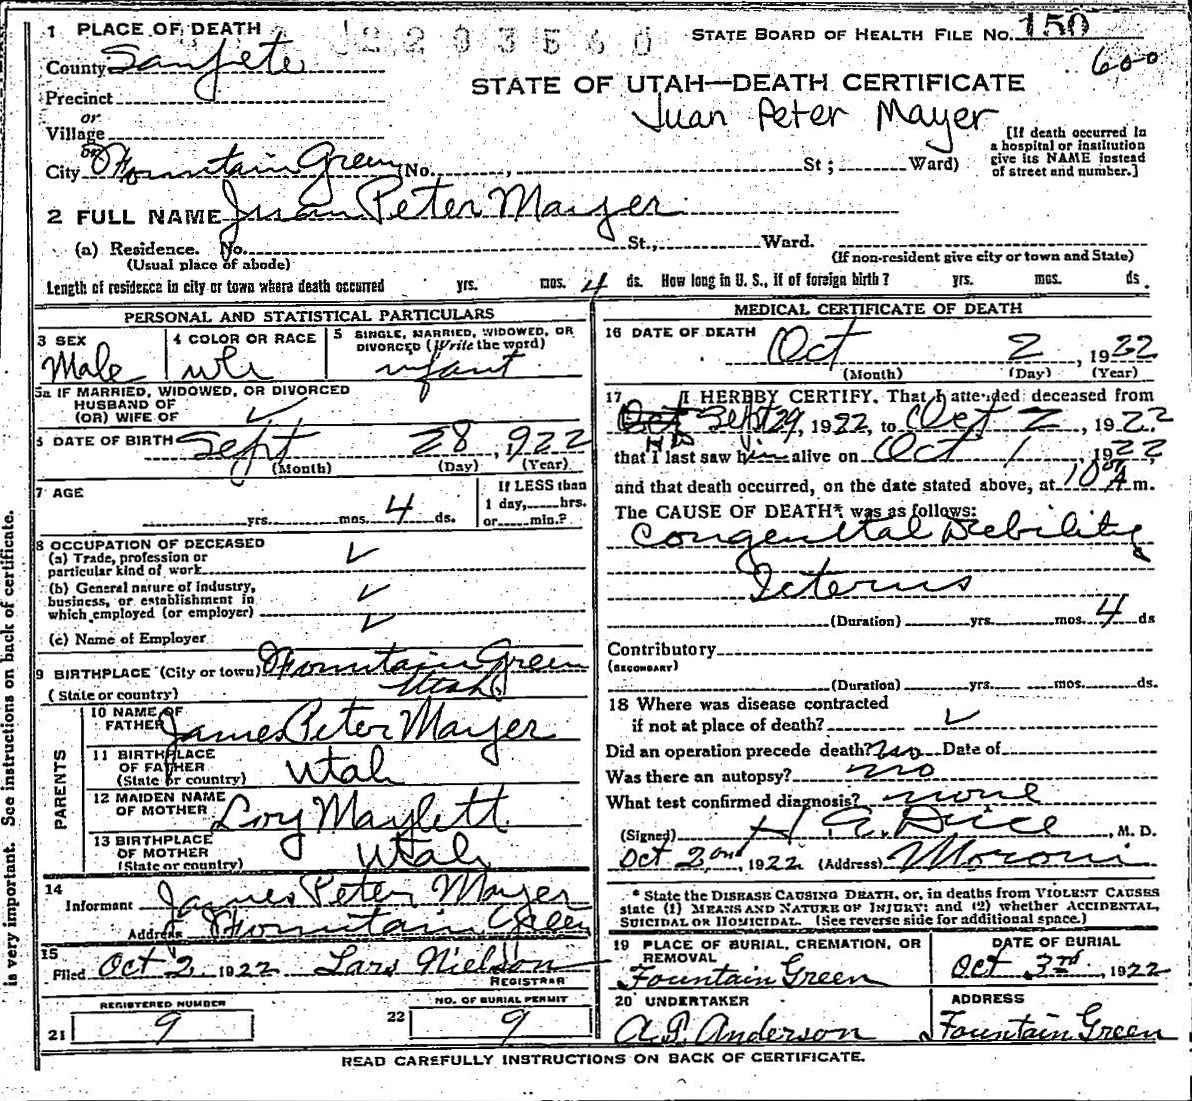 1 PLACE OF DEATH
2293560
STATE BOARD OF HEALTH FILE NO. 150
County Sanpete
600
Precinct
STATE OF UTAH—DEATH CERTIFICATE
or
Village
Juan Peter Mayer
or
City Fountain Green (No. , St ; Ward)
[If death occurred in
a hospital or institution
give its NAME instead
of street and number.]
2 FULL NAME Juan Peter Mayer
(a) Residence. No. St., Ward.
(Usual place of abode) (If non-resident give city or town and State)
Length of residence in city or town where death occurred yrs. mos. 4 ds. How long in U. S., if of foreign birth? yrs. mos. ds.
PERSONAL AND STATISTICAL PARTICULARS
3 SEX Male
4 COLOR OR RACE wh
5 SINGLE, MARRIED, WIDOWED, OR
DIVORCED (Write the word)
infant
5a IF MARRIED, WIDOWED, OR DIVORCED
HUSBAND OF
(OR) WIFE OF ✓
6 DATE OF BIRTH Sept 28, 1922
(Month) (Day) (Year)
7 AGE
yrs. mos. 4 ds.
If LESS than
1 day, hrs.
or min.?
8 OCCUPATION OF DECEASED
(a) Trade, profession or
particular kind of work ✓
(b) General nature of industry,
business, or establishment in
which employed (or employer) ✓
(c) Name of Employer ✓
9 BIRTHPLACE (City or town) Fountain Green
(State or country) Utah
PARENTS
10 NAME OF
FATHER James Peter Mayer
11 BIRTHPLACE
OF FATHER
(State or country) Utah
12 MAIDEN NAME
OF MOTHER Lory Maylett
13 BIRTHPLACE
OF MOTHER
(State or country) Utah
14
Informant James Peter Mayer
Address Fountain Green
15
Filed Oct 2 1922 Lars Nielson
REGISTRAR
REGISTERED NUMBER
21 9
NO. OF BURIAL PERMIT
22 9
MEDICAL CERTIFICATE OF DEATH
16 DATE OF DEATH Oct 2, 1922
(Month) (Day) (Year)
17 I HEREBY CERTIFY. That I attended deceased from
Oct Sept 29, 1922, to Oct 2, 1922
that I last saw him alive on Oct 1 1922
and that death occurred, on the date stated above, at 10 A m.
The CAUSE OF DEATH* was as follows:
Congenital Debility
Icterus
(Duration) yrs. mos. 4 ds
Contributory
(SECONDARY)
(Duration) yrs. mos. ds.
18 Where was disease contracted
if not at place of death? ✓
Did an operation precede death? no Date of
Was there an autopsy? no
What test confirmed diagnosis? none
(Signed) H. A. Dice, M. D.
Oct 2nd, 1922 (Address) Moroni
* State the DISEASE CAUSING DEATH, or, in deaths from VIOLENT CAUSES
state (1) MEANS AND NATURE OF INJURY; and (2) whether ACCIDENTAL,
SUICIDAL OR HOMICIDAL. (See reverse side for additional space.)
19 PLACE OF BURIAL, CREMATION, OR
REMOVAL
Fountain Green
DATE OF BURIAL
Oct 3rd, 1922
20 UNDERTAKER
A. P. Anderson
ADDRESS
Fountain Green
READ CAREFULLY INSTRUCTIONS ON BACK OF CERTIFICATE.
is very important. See instructions on back of certificate.